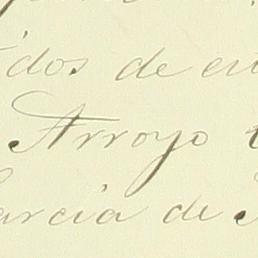 idos de
Arroyo
arcia de